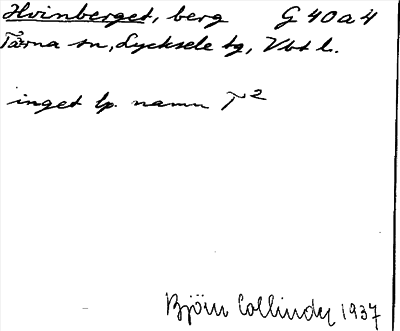 Hvinberget, berg G 40 a 4
Tärna sn, Lycksele tg, Vbt l.
inget lp. namn T²
Björn Collinder 1937